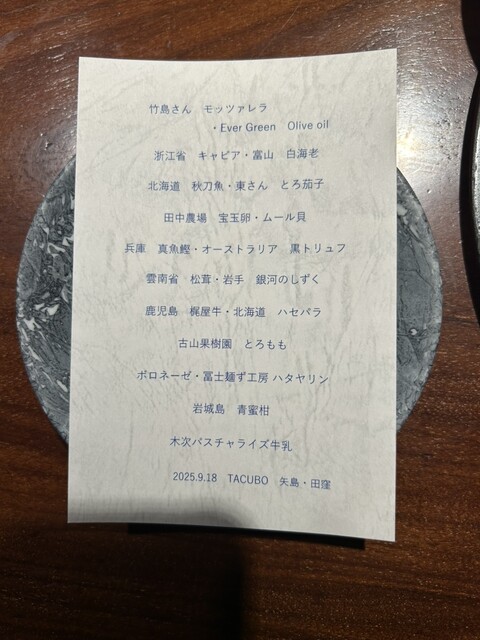 竹島さん　モッツァレラ
・Ever Green　Olive oil
浙江省　キャビア・富山　白海老
北海道　秋刀魚・東さん　とろ茄子
田中農場　宝玉卵・ムール貝
兵庫　真魚鰹・オーストラリア　黒トリュフ
雲南省　松茸・岩手　銀河のしずく
鹿児島　梶屋牛・北海道　ハセパラ
古山果樹園　とろもも
ボロネーゼ・冨士麺ず工房 ハタヤリン
岩城島　青蜜柑
木次パスチャライズ牛乳
2025.9.18　TACUBO　矢島・田窪